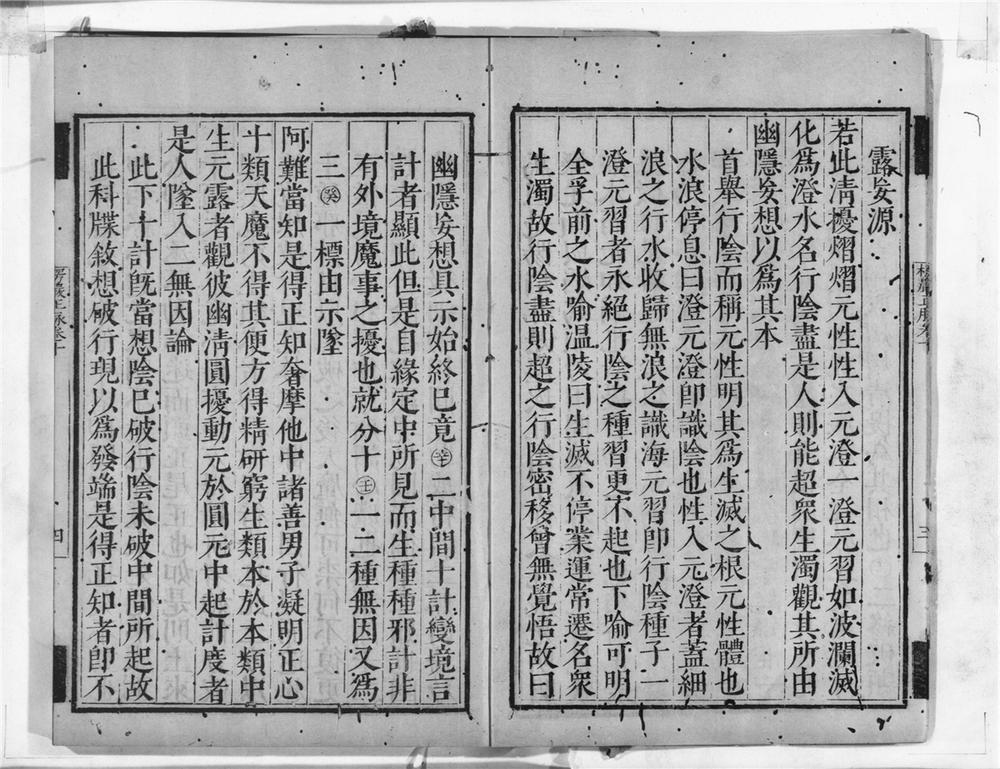 露妄源
若此清擾熠熠元性性入元澄一澄元習如波瀾滅
化為澄水名行陰盡是人則能超眾生濁觀其所由
幽隱妄想以為其本
首舉行陰而稱元性明其為生滅之根元性體也
水浪停息曰澄元澄即識陰也性入元澄者蓋細
浪之行水收歸無浪之識海元習即行陰種子一
澄元習者永絕行陰之種習更不起也下喻可明
全孚前之水喻溫陵曰生滅不停業運常遷名眾
生濁故行陰盡則超之行陰密移曾無覺悟故曰
幽隱妄想具示始終已竟㊛二中間十計變境言
計者顯此但是自緣定中所見而生種種邪計非
有外境魔事之擾也就分十㊛一二種無因又為
三㊛一標由示墜
阿難當知是得正知奢摩他中諸善男子凝明正心
十類天魔不得其便方得精研窮生類本於本類中
生元露者觀彼幽清圓擾動元於圓元中起計度者
是人墜入二無因論
此下十計既當想陰已破行陰未破中間所起故
此科牒敘想破行現以為發端是得正知者即不
四
三